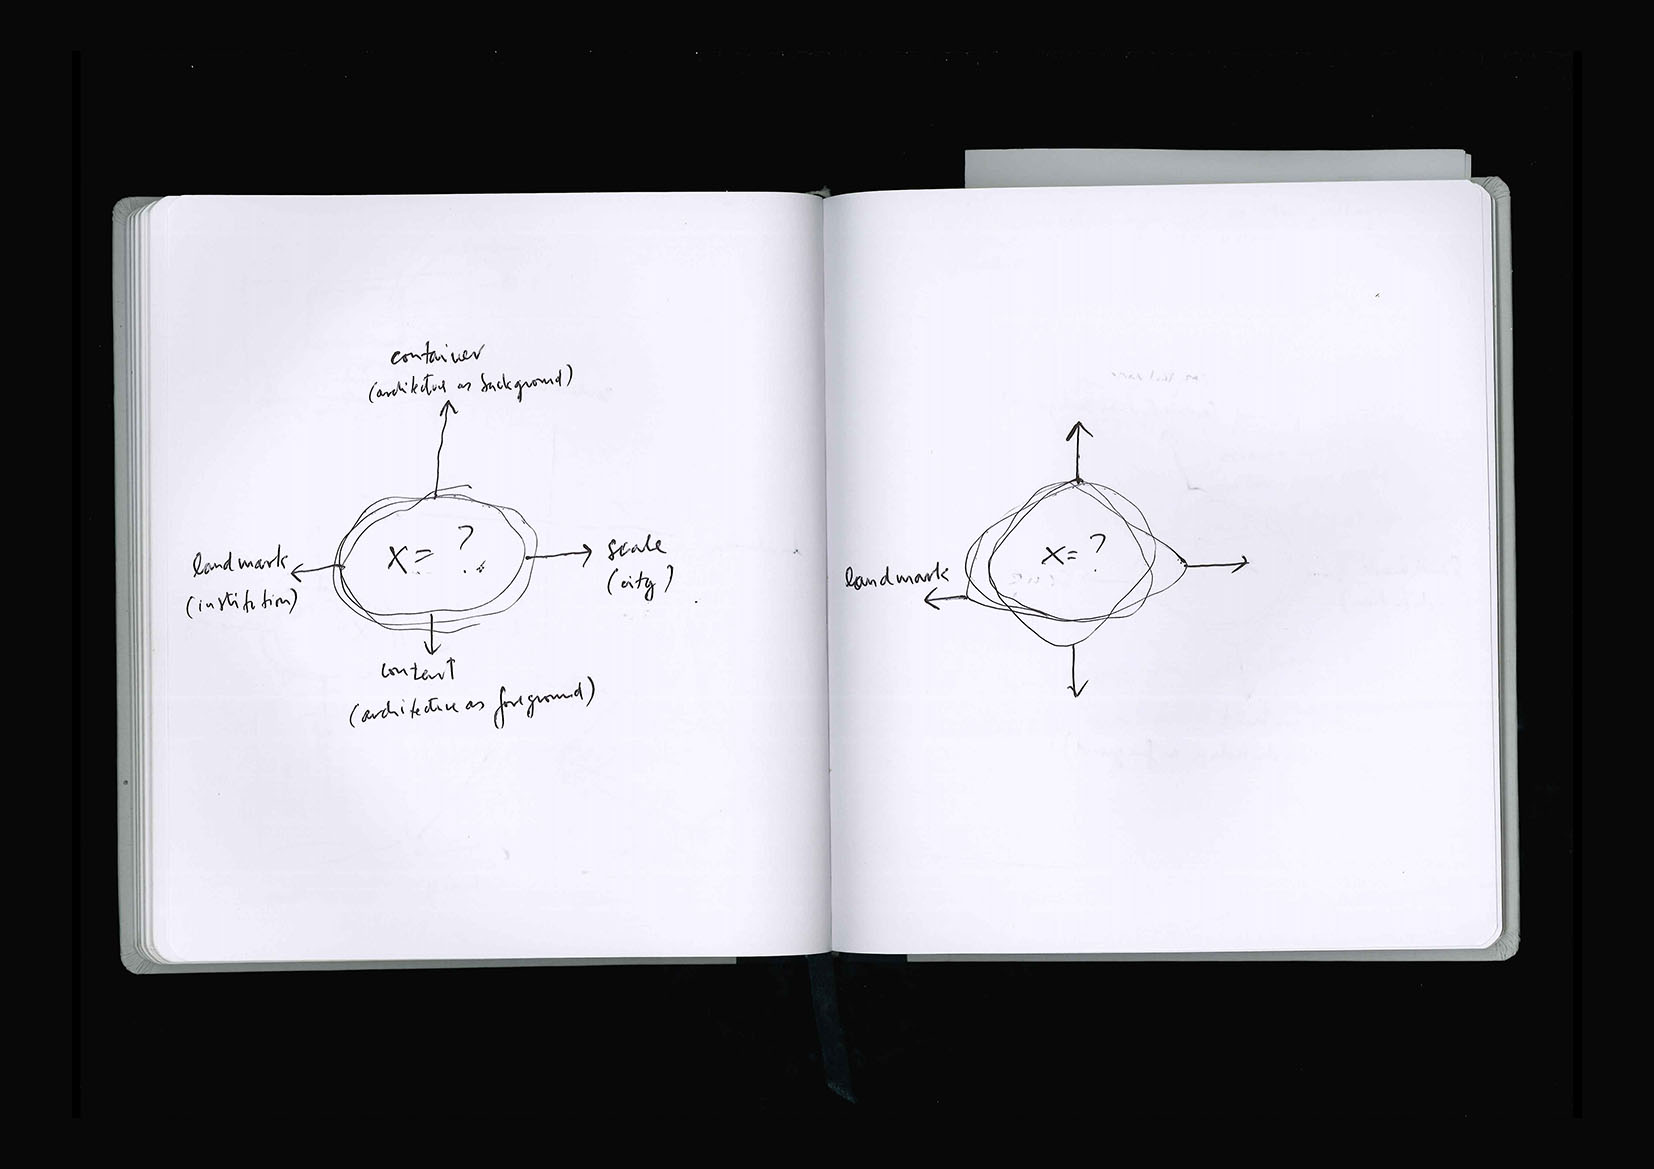 container
(architecture as background)
x = ?
landmark
(institution)
scale
(city)
content
(architecture as foreground)
x = ?
landmark